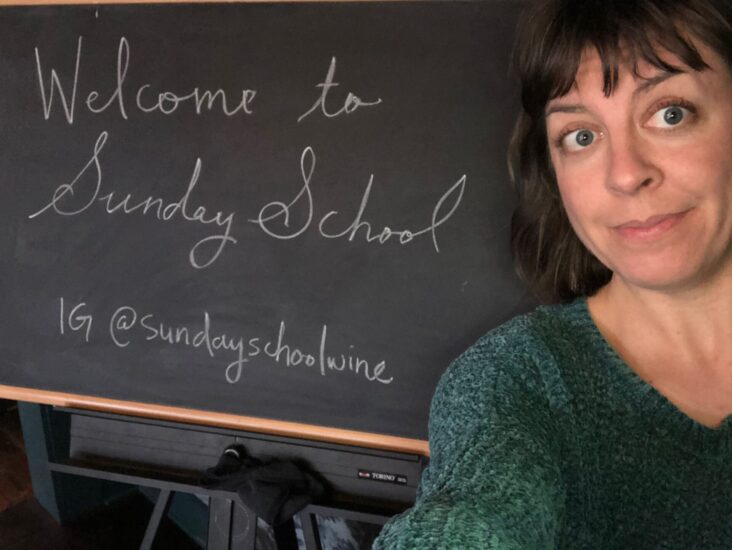 Welcome to
Sunday School
IG @sundayschoolwine
TORINO